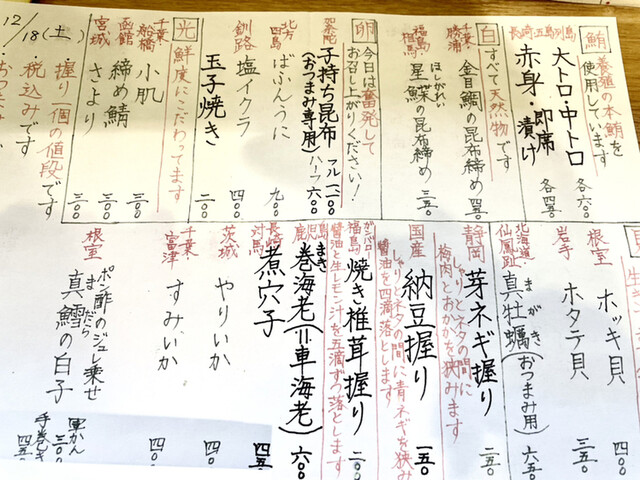 鮪
養殖の本鮪を
使用しています
長崎・五島列島
大トロ・中トロ
各六〇〇
赤身・即席漬け
各四五〇
白
すべて天然物です
千葉勝浦
金目鯛の昆布締め
四五〇
福島相馬
ほしがれい
星鰈の昆布締め
三五〇
卵
今日は奮発して
お召し上がりください!
子持ち昆布
(おつまみ専用)
フル一二〇〇
ハーフ六〇〇
北方四島
ばふんうに
九〇〇
釧路
塩イクラ
四〇〇
玉子焼き
二〇〇
光
鮮度にこだわってます
千葉船橋
小肌
三〇〇
函館
締め鯖
三〇〇
宮城
さより
三〇〇
12/18(土)
握り一個の値段です
税込みです
根室
ホッキ貝
四〇〇
岩手
ホタテ貝
三五〇
北海道・仙鳳趾
まがき
真牡蠣(おつまみ用)
六五〇
静岡
芽ネギ握り
二五〇
しゃりとネタの間に
梅肉とおかかを挟みます
国産
納豆握り
一五〇
しゃりとネタの間に青ネギを挟み
醤油を四滴落とします
ガンバロ福島
焼き椎茸握り
二〇〇
醤油と生レモン汁を五滴ずつ落とします
鹿児島
まき
巻海老(=車海老)
六〇〇
長崎対馬
煮穴子
四五〇
茨城
やりいか
四〇〇
千葉富津
すみいか
四〇〇
根室
ポン酢のジュレ乗せ
まだら
真鱈の白子
軍かん三〇〇
手巻き四五〇